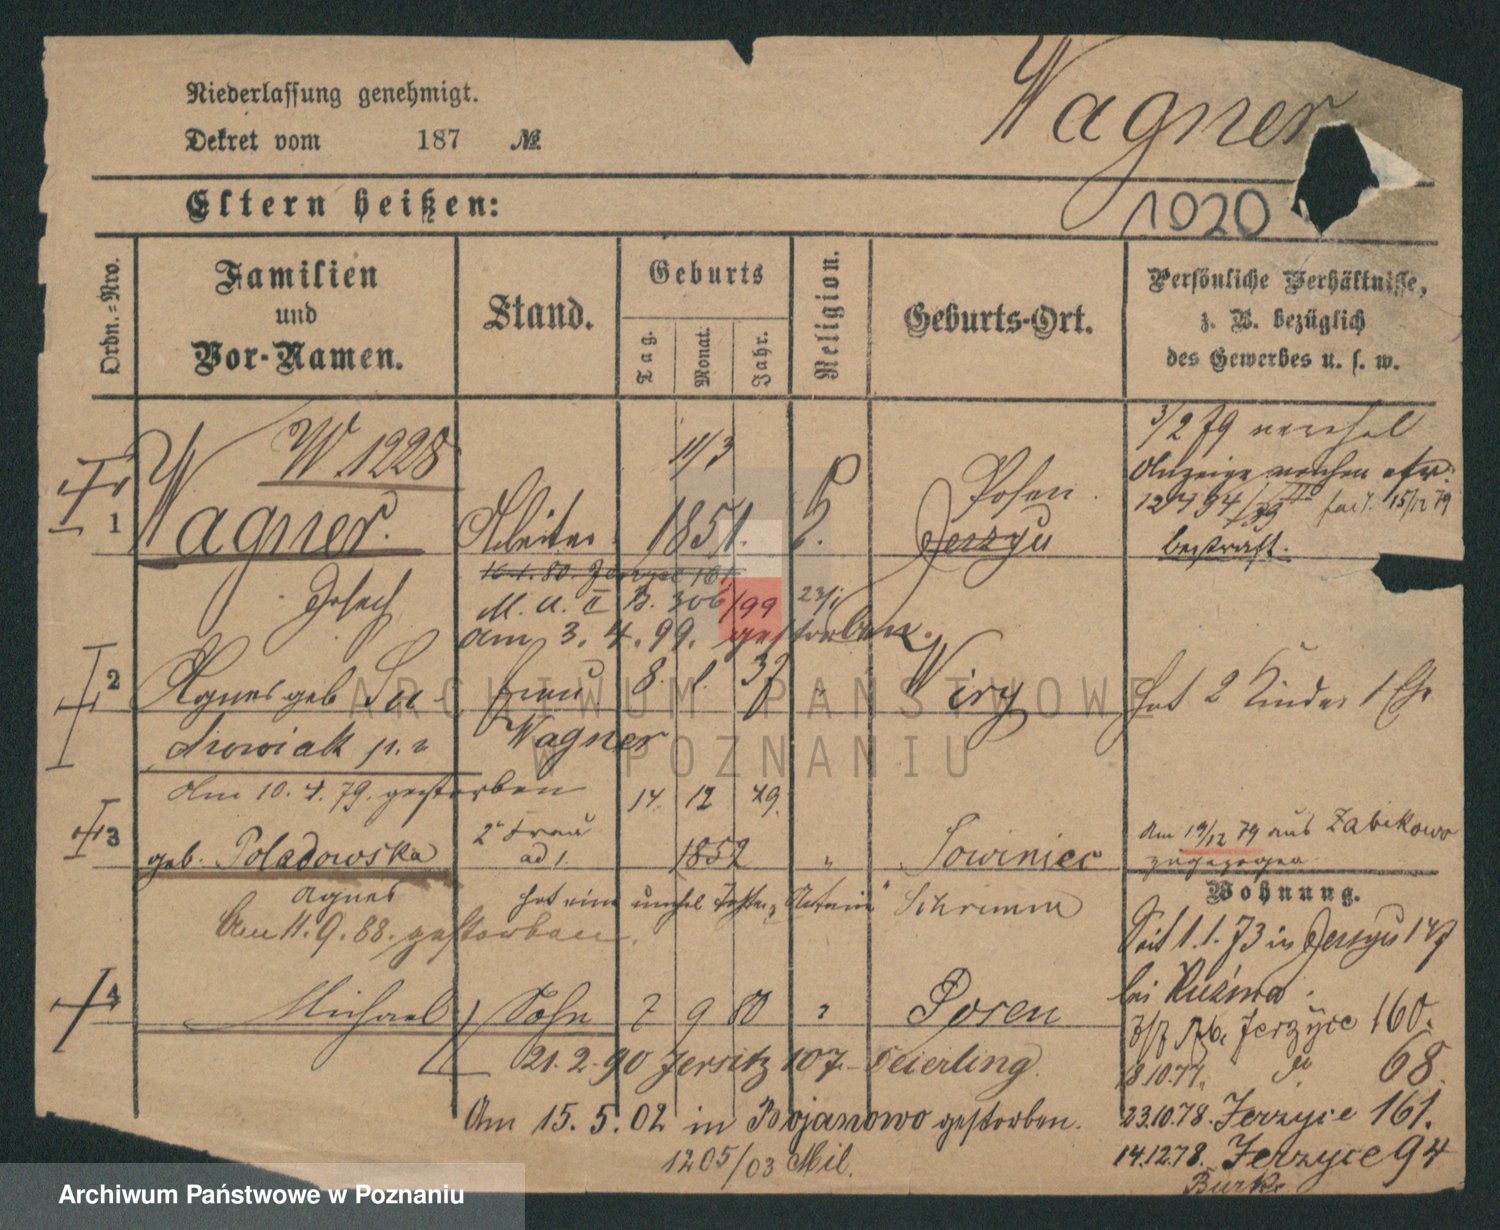 Niederlassung genehmigt.
Dekret vom 187 №
Wagner
1920
Eltern heißen:
Ordn.=Nro.
Familien und Vor-Namen.
Stand.
Geburts
Tag.
Monat.
Jahr.
Religion.
Geburts-Ort.
Persönliche Verhältnisse,
z. B. bezüglich
des Gewerbes u. s. w.
W 1228
1
Wagner.
Joseph
Arbeiter
11/3
1851.
Posen.
Jerzyce
3/2 79
Anzeige
15/12 79
bestraft.
16.1.80. Jerzyce 161.
M. U. II B. 306/99 23/
am 3. 4. 99. gestorben.
2
Agnes geb Su
Frau
8.
"
Wiry
hat 2 Kinder 1
Wagner
Am 10. 4. 79. gestorben
14. 12 29.
3
geb. Poladowska
2te Frau
ad 1.
1852
"
Sowiniec
Am 19/12 79 aus Zabikowo
zugezogen
Agnes
hat eine
Schrimm
Am 11. 9. 88. gestorben.
Wohnung.
Seit 1. 1. 73 in Jerzyce
bei
4
Michael
Sohn
7 9 80
"
Posen
Jerzyce 160.
21. 2. 90 Jersitz 107 - Feierling.
18.10.77. do 68.
Am 15. 5. 02 in Bojanowo gestorben.
23.10.78. Jerzyce 161.
1205/03 Mil.
14.12.78. Jerzyce 94
ARCHIWUM PAŃSTWOWE
W POZNANIU
Archiwum Państwowe w Poznaniu